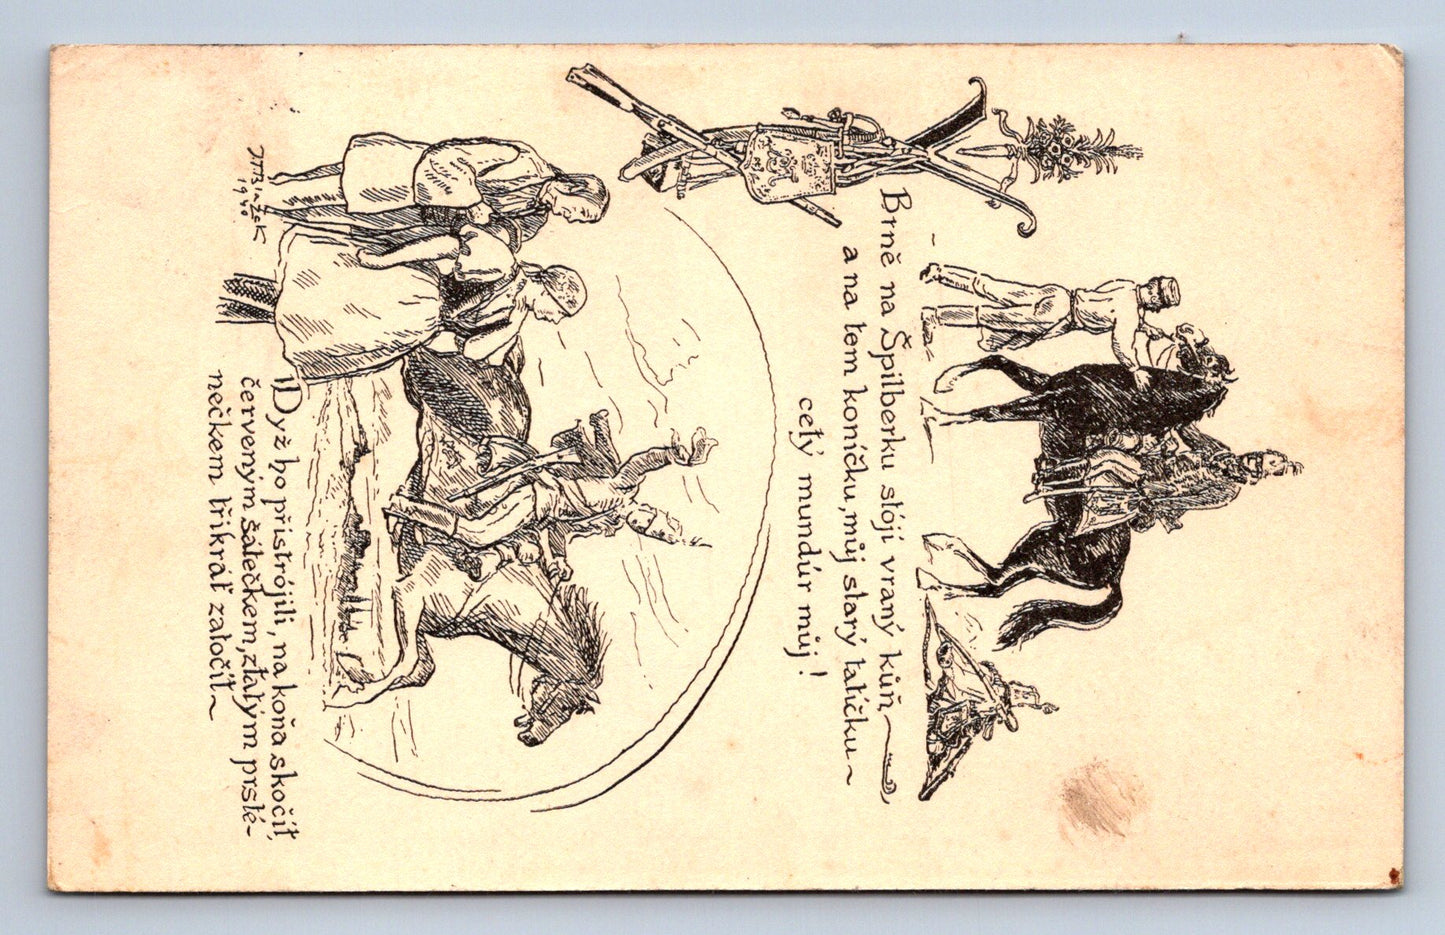 Brně na Špilberku stójí vraný kůň
a na tem koníčku, můj starý tatíčku~
celý mundúr můj!
Dyž ho přistrójili, na koňa skočiť,
červeným šátečkem, zlatým prsté-
nečkem třikráť zatočit~
1940